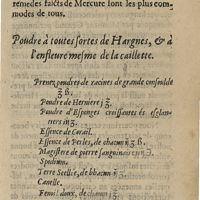 remedes faicts de Mercure sont les plus com-
modes de tous.
Poudre à toutes sortes de Hargnes, & à
l'enfleure mesme de la caillette.
Prenez poudres de racines de grande consolde
ʒ ß.
Poudre de Herniere ʒ.
Poudre d'Esponges croissantes és esglan-
tiers iij ʒ.
Essence de Corail.
Essence de Perles, de chacun ij ʒ ß.
Magistere de pierre sanguinaire ij ʒ.
Spodium.
Terre Seellée, de chacun ij ʒ.
Canelle.
Fenoil doux, de chacun ʒ